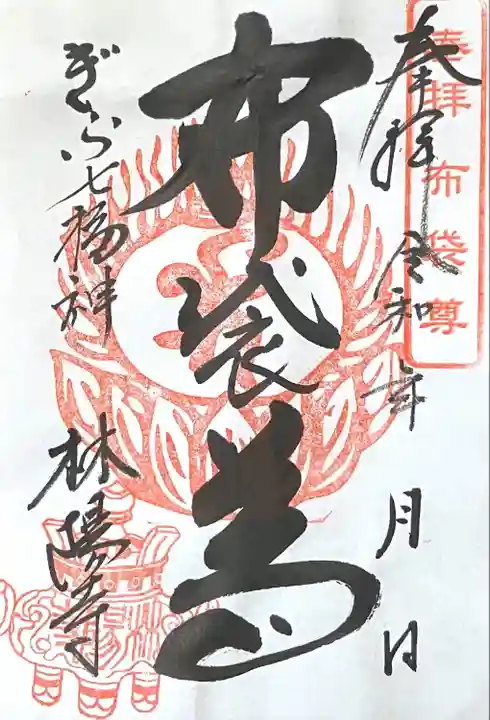 奉拝 布袋尊
奉拝 令和 年 月 日
布袋尊
ぎふ七福神 林陽寺